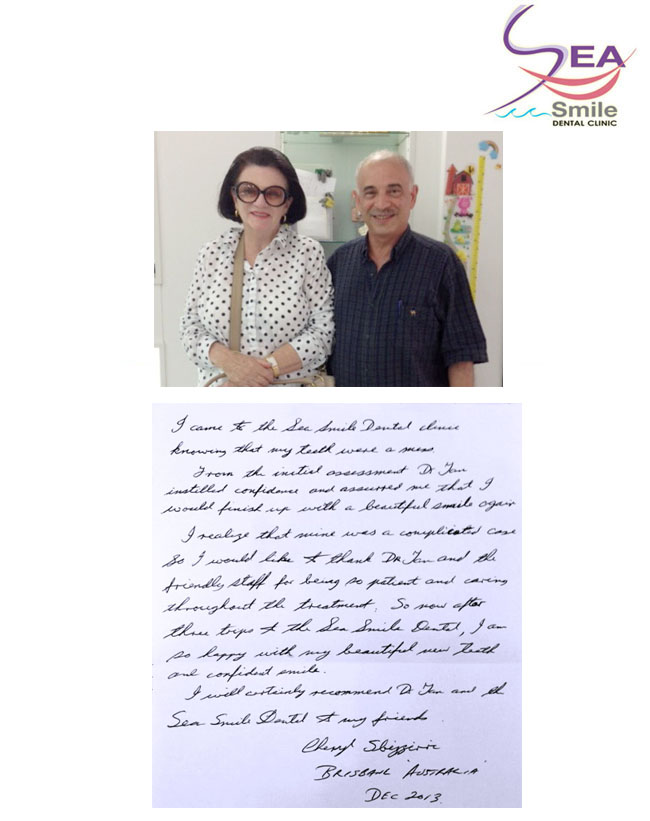 SEA
Smile
DENTAL CLINIC
I came to the Sea Smile Dental clinic
knowing that my teeth were a mess.
From the initial assessment Dr Tan
instilled confidence and assurred me that I
would finish up with a beautiful smile again
I realize that mine was a complicated case
So I would like to thank Dr Tan and the
friendly staff for being so patient and caring
throughout the treatment. So now after
three trips to the Sea Smile Dental, I am
so happy with my beautiful new teeth
and confident smile.
I will certainly recommend Dr Tan and the
Sea Smile Dental to my friends.
Cheryl
BRISBANE AUSTRALIA
DEC 2013.